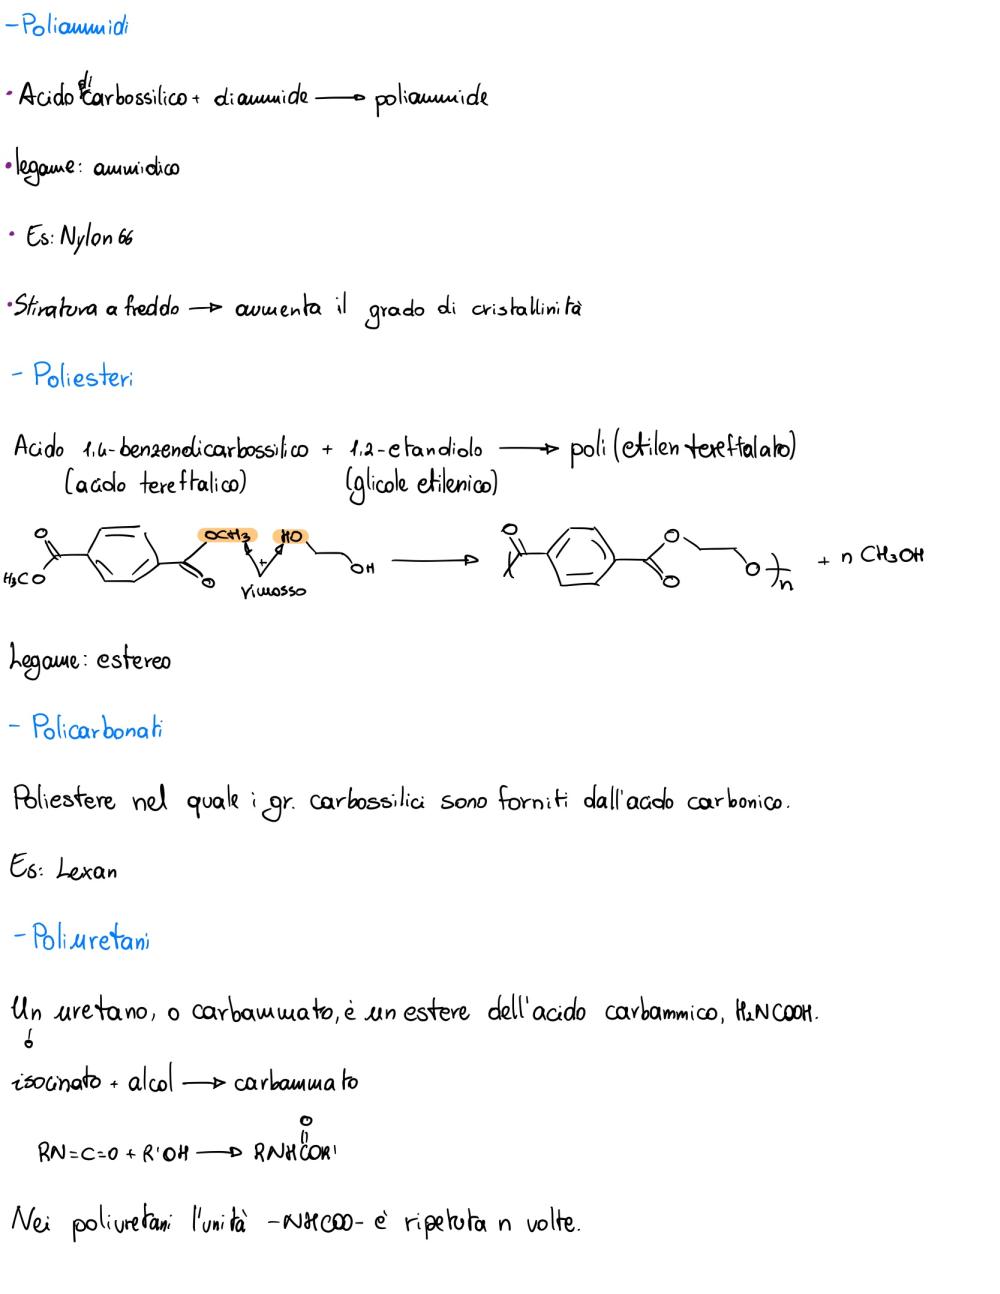 - Poliammidi
• Acido dicarbossilico + diammide → poliammide
• legame: ammidico
• Es: Nylon 66
• Stiratura a freddo → aumenta il grado di cristallinità
- Poliesteri
Acido 1,4-benzendicarbossilico + 1,2-etandiolo → poli(etilen tereftalato)
(acido tereftalico) (glicole etilenico)
O H3CO OCH3 O + HO OH → O O O O n + n CH3OH
rimosso
Legame: estereo
- Policarbonati
Poliestere nel quale i gr. carbossilici sono forniti dall'acido carbonico.
Es: Lexan
- Poliuretani
Un uretano, o carbammato, è un estere dell'acido carbammico, H2NCOOH.
isocinato + alcol → carbammato
O
RN=C=O + R'OH → RNHCOR'
Nei poliuretani l'unità -NHCOO- è ripetuta n volte.